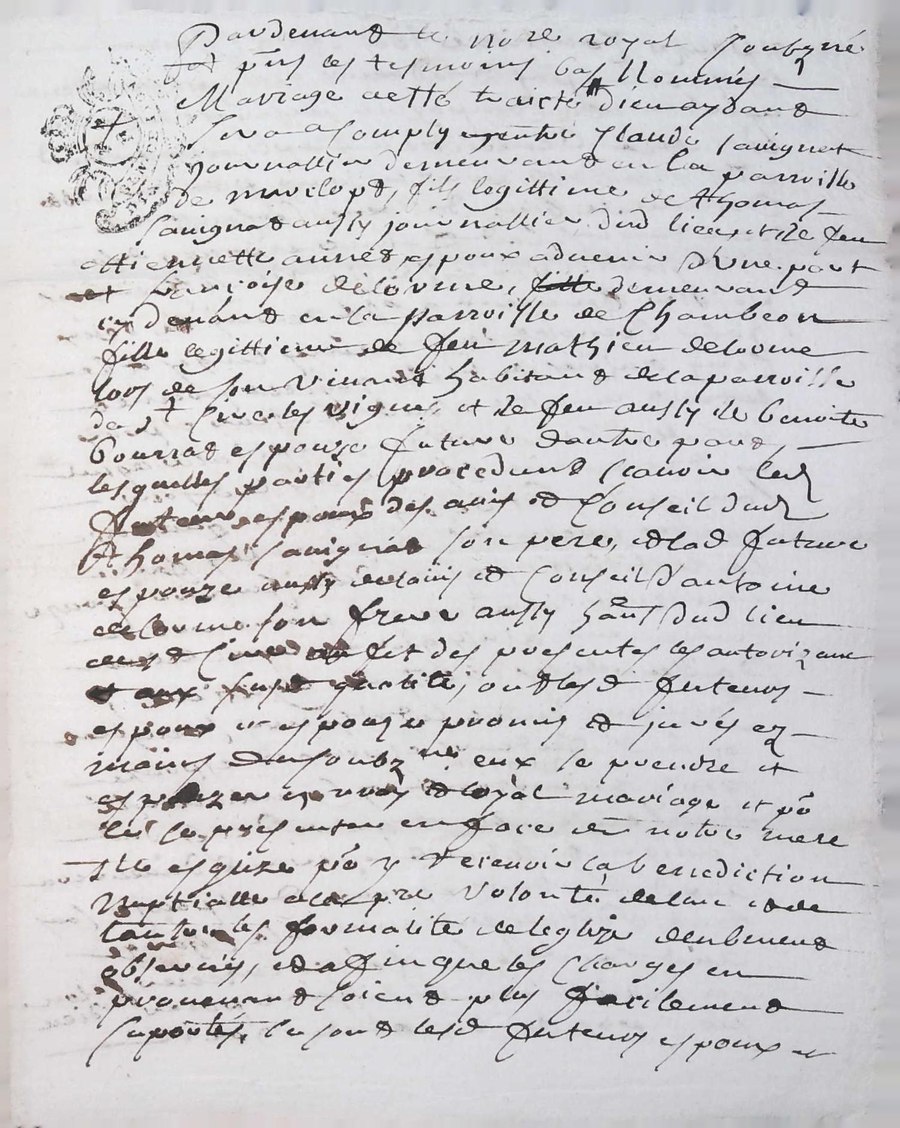 Pardevant le no.re royal soubzné
et pns les tesmoins bas nommés
Mariage a esté traicté dieu aydant
sera accomply entre Claude Sauignet
journallier demeurant en la parroisse
de , fils legittime de Thomas
Sauignet aussy journallier dud lieu et de feu
Attiennette espoux aduenir d'une part
et francoise delorme, demeurant
cy devant en la parroisse de Chambeon
fille legittime de feu Mathieu delorme
de son vivant habitant de la parroisse
de st Cire les vignes et de feu aussy de benoite
espouze future dautre part
lesquelles parties procedant scauoir led
futeur espoux des auis et Conseil dud
Thomas Sauignet son pere, et lad future
espouze aussy de lauis et Conseil d'antoine
delorme son frere aussy hant dud lieu
de st Cire des presentes les autorizant
et aux fins, ont lesd futeurs
espoux et espouze promis et jurés ez
mains du soubz.né eux se prendre et
espouzer en vray et loyal mariage et po
se presenter en face de notre mere
ste esglize po y recevoir la benediction
nuptialle a la pre volonté de lun et de
lautre les formalité de leglize deubment
observées, et afin que les Charges en
prouenant soient plus facilement
suportés, se sont lesd futeurs espoux et